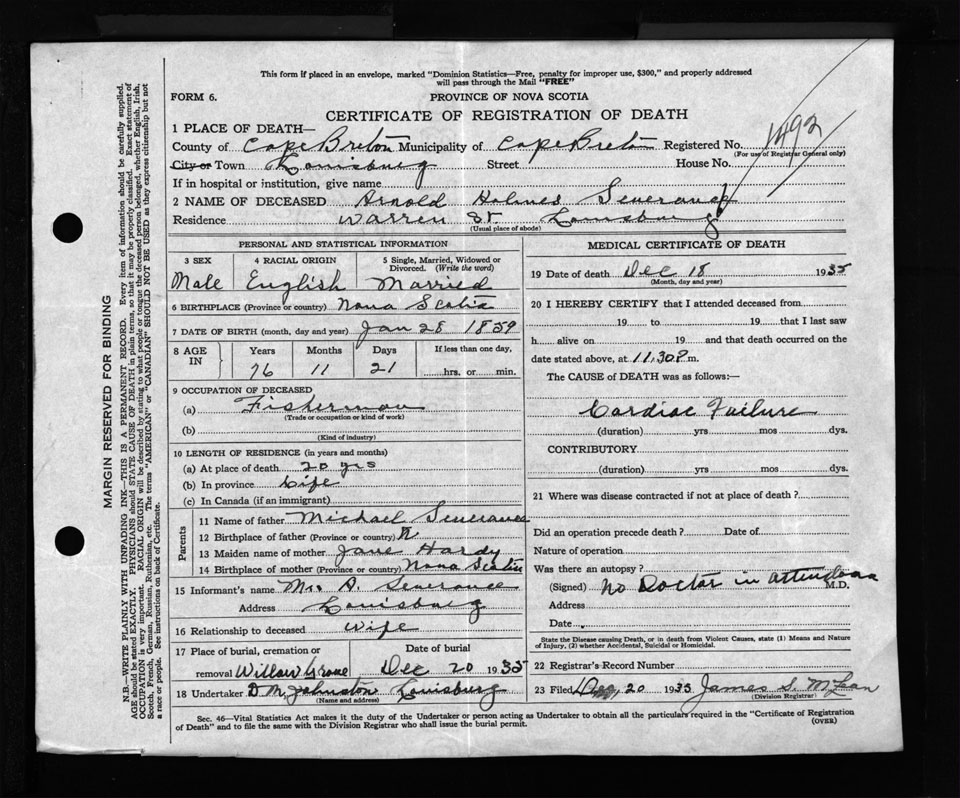 This form if placed in an envelope, marked "Dominion Statistics—Free, penalty for improper use, $300," and properly addressed
will pass through the Mail "FREE"
FORM 6.
PROVINCE OF NOVA SCOTIA
CERTIFICATE OF REGISTRATION OF DEATH
1492
1 PLACE OF DEATH—
County of Cape Breton Municipality of Cape Breton Registered No.
(For use of Registrar General only)
City or Town Louisburg Street House No.
If in hospital or institution, give name
2 NAME OF DECEASED Arnold Holmes Severance
Residence Warren St. Louisburg
(Usual place of abode)
PERSONAL AND STATISTICAL INFORMATION
3 SEX 4 RACIAL ORIGIN 5 Single, Married, Widowed or
Divorced. (Write the word)
Male English Married
6 BIRTHPLACE (Province or country) Nova Scotia
7 DATE OF BIRTH (month, day and year) Jan 28 1859
8 AGE IN Years Months Days If less than one day,
76 11 21 hrs. or min.
9 OCCUPATION OF DECEASED
(a) Fisherman
(Trade or occupation or kind of work)
(b)
(Kind of industry)
10 LENGTH OF RESIDENCE (in years and months)
(a) At place of death 20 yrs
(b) In province Life
(c) In Canada (if an immigrant)
Parents
11 Name of father Michael Severance
12 Birthplace of father (Province or country) N
13 Maiden name of mother Jane Hardy
14 Birthplace of mother (Province or country) Nova Scotia
15 Informant's name Mrs. A. Severance
Address Louisburg
16 Relationship to deceased Wife
17 Place of burial, cremation or Date of burial
removal Willow Grove Dec 20 1935
18 Undertaker D M Johnston Louisburg
(Name and address)
MEDICAL CERTIFICATE OF DEATH
19 Date of death Dec 18 1935
(Month, day and year)
20 I HEREBY CERTIFY that I attended deceased from
19 to 19 that I last saw
h alive on 19 and that death occurred on the
date stated above, at 11,30 P. m.
The CAUSE of DEATH was as follows:—
Cardiac Failure
(duration) yrs mos dys.
CONTRIBUTORY
(duration) yrs. mos. dys.
21 Where was disease contracted if not at place of death ?
Did an operation precede death? Date of
Nature of operation
Was there an autopsy?
(Signed) No Doctor in attendance M.D.
Address
Date
State the Disease causing Death, or in death from Violent Causes, state (1) Means and Nature
of Injury, (2) whether Accidental, Suicidal or Homicidal.
22 Registrar's Record Number
23 Filed Dec 20 1935 James S. McLean
(Division Registrar)
Sec. 46—Vital Statistics Act makes it the duty of the Undertaker or person acting as Undertaker to obtain all the particulars required in the "Certificate of Registration
of Death" and to file the same with the Division Registrar who shall issue the burial permit. (OVER)
MARGIN RESERVED FOR BINDING
N.B.—WRITE PLAINLY WITH UNFADING INK—THIS IS A PERMANENT RECORD. Every item of information should be carefully supplied.
AGE should be stated EXACTLY. PHYSICIANS should STATE CAUSE OF DEATH in plain terms, so that it may be properly classified. Exact statement of
OCCUPATION is very important. RACIAL ORIGIN will be described by stating to what people or tongue the deceased person belonged, whether English, Irish,
Scotch, French, German, Russian, Ruthenian, etc. The terms "AMERICAN" or "CANADIAN" SHOULD NOT BE USED as they express citizenship but not
a race or people. See instructions on back of Certificate.